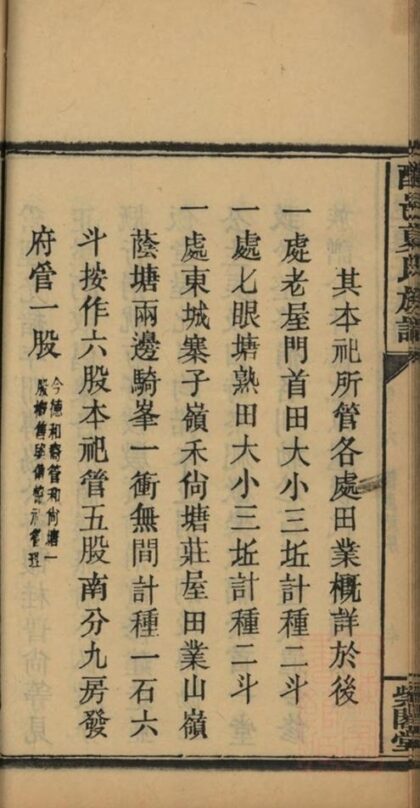 其本祀所管各處田業概詳於後
一處老屋門首田大小三坵計種二斗
一處七眼塘熟田大小三坵計種二斗
一處東城寨子嶺禾尙塘莊屋田業山嶺
蔭塘兩邊騎峯一衝無間計種一石六
斗按作六股本祀管五股南分九房發
府管一股
今德和裔管和尙塘一
股
夏氏族譜
紫閣堂